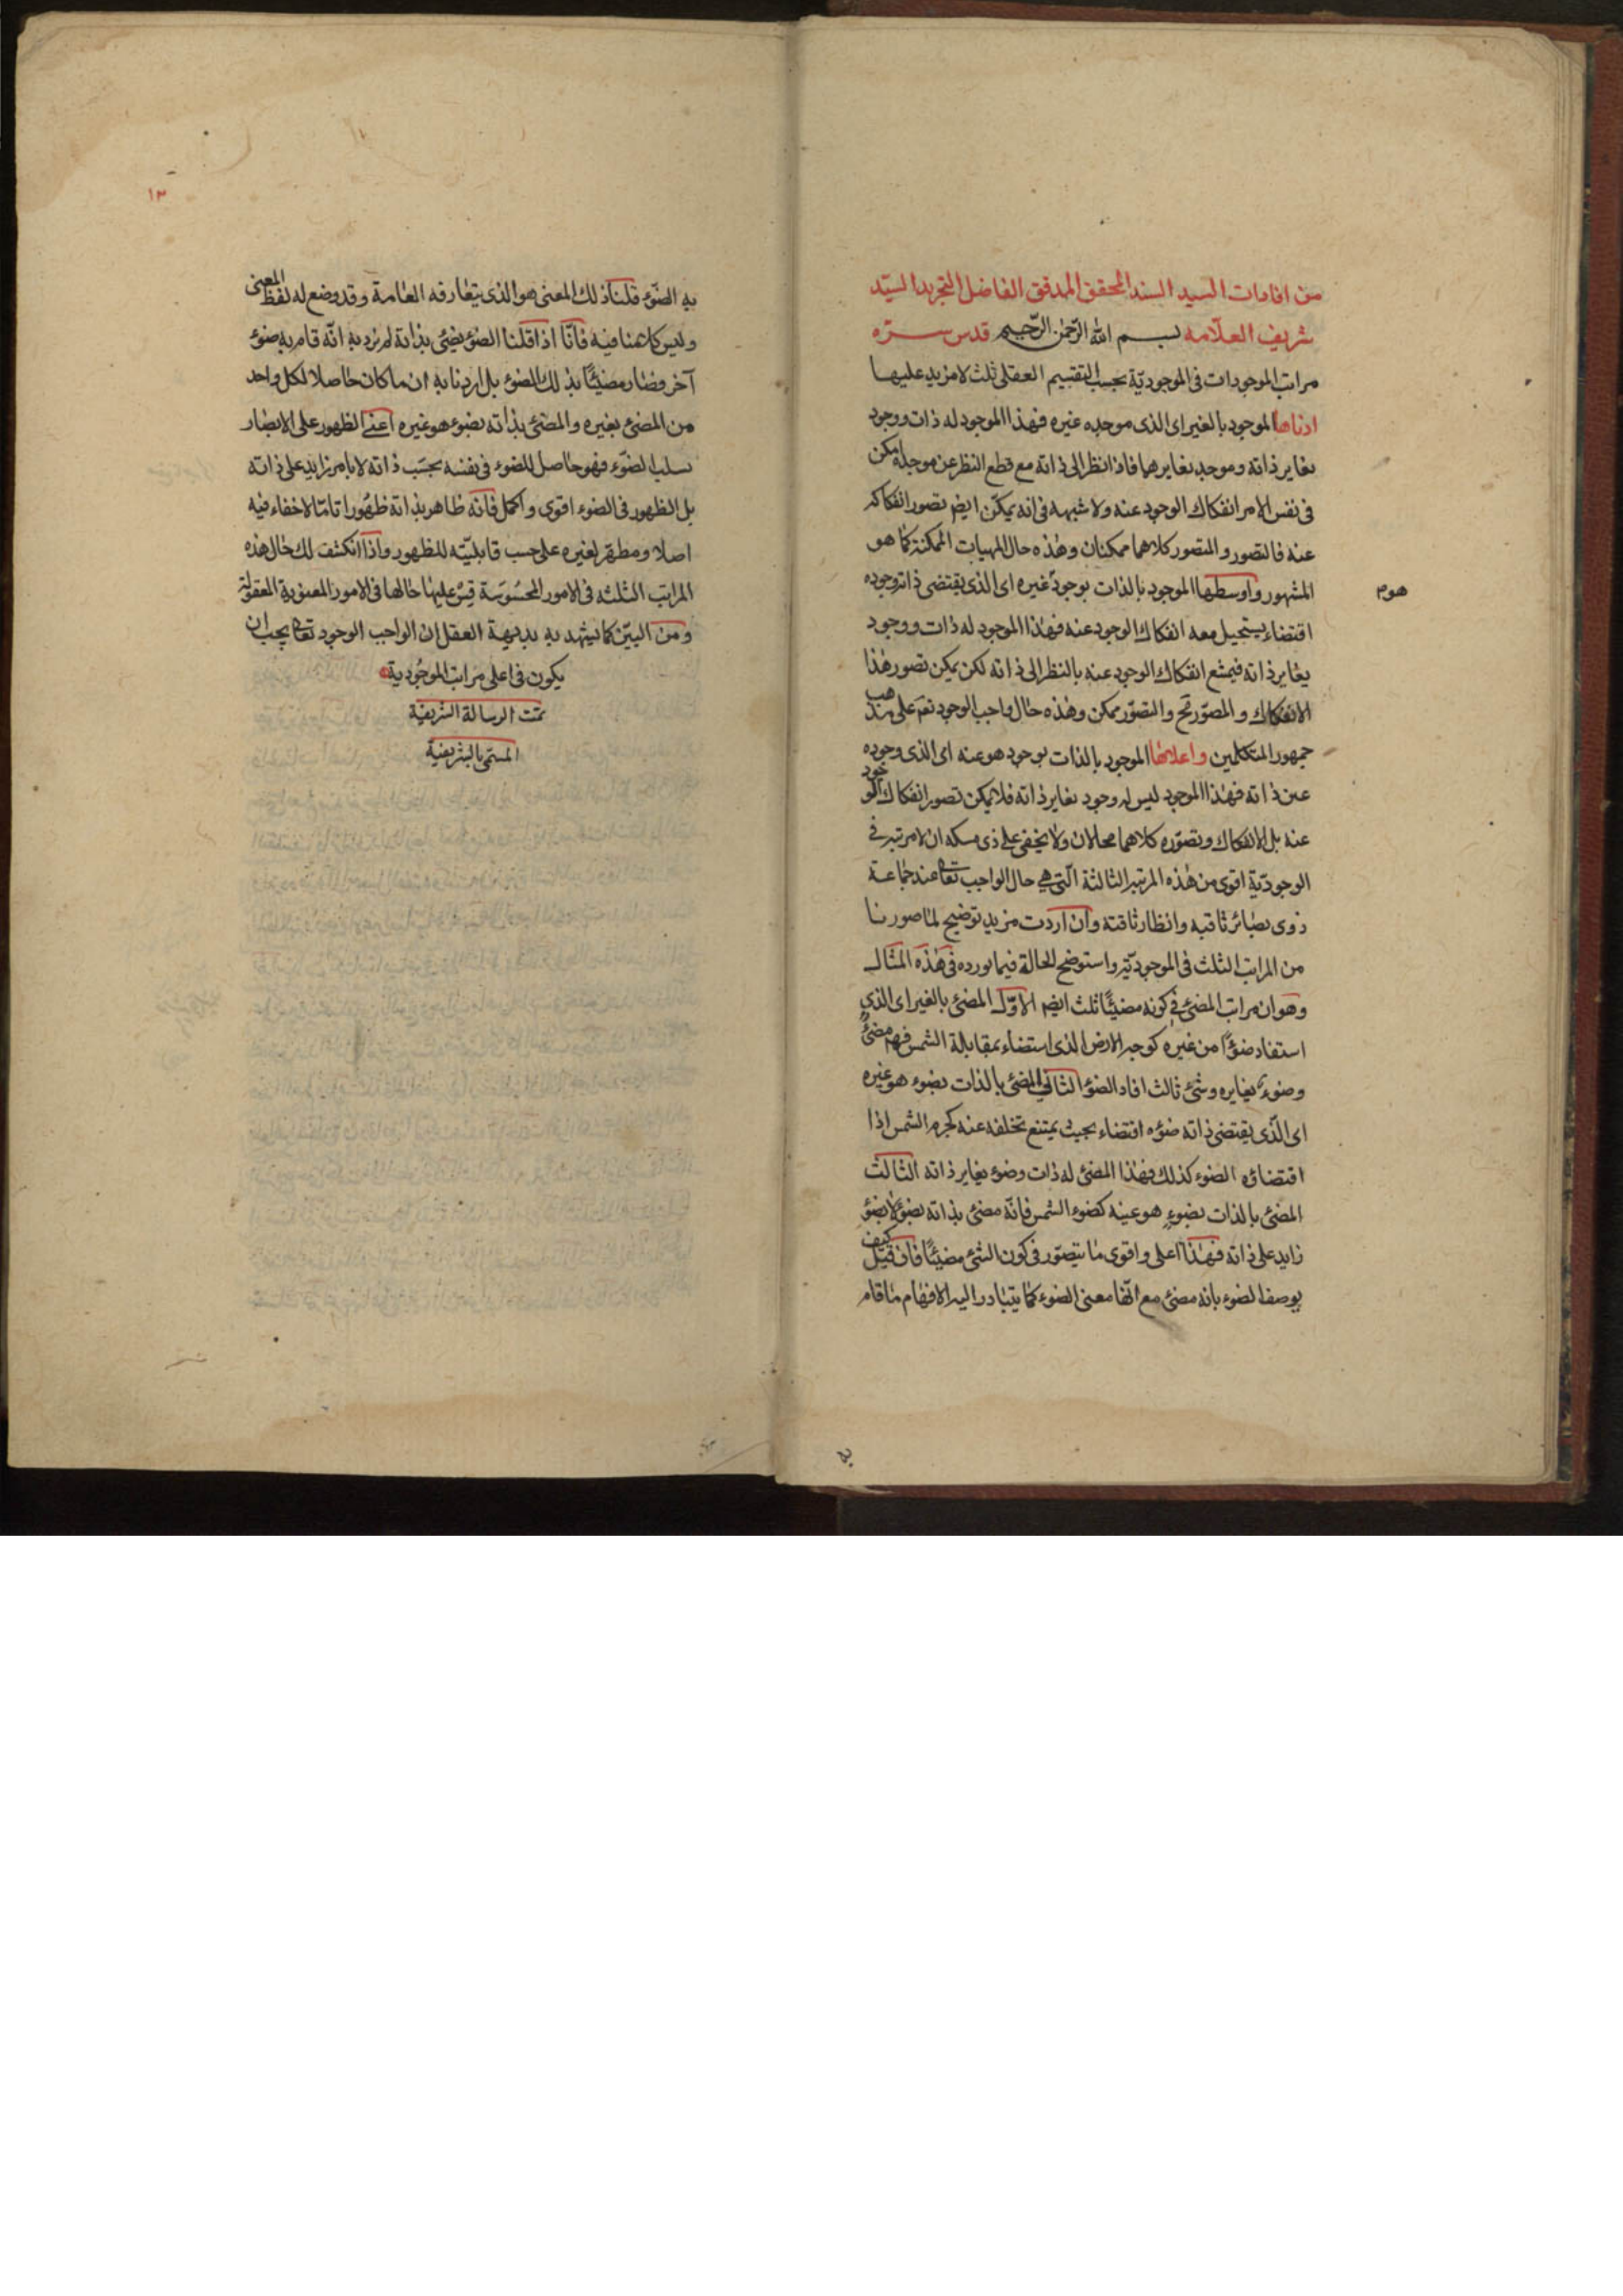 من افادات السيد السند المحقق المدقق الفاضل النحرير السيّد
شريف العلّامه بسم الله الرّحمن الرّحيم قدس سرّه
مراتب الموجودات فى الموجوديّة بحسب التقسيم العقلى ثلث لا مزيد عليها
ادناها الموجود بالغير اى الذى موجده غيره فهذا الموجود له ذات ووجود
يغاير ذاته وموجد يغايرهما فاذا نظر الى ذاته مع قطع النظر عن موجده امكن
فى نفس الامر انفكاك الوجود عنه ولا شبهه فى انه يمكن ايضا تصور انفكاكه
عنه فالتصور والمتصور كلاهما ممكنان وهذه حال المهيات الممكنة كما هو
المشهور واوسطها الموجود بالذات بوجود غيره اى الذى يقتضى ذاته وجوده
هوم
اقتضاء يستحيل معه انفكاك الوجود عنه فهذا الموجود له ذات ووجود
يغاير ذاته فيمتنع انفكاك الوجود عنه بالنظر الى ذاته لكن يمكن تصور هذا
الانفكاك والمصوّر مح والتصوّر ممكن وهذه حال واجب الوجود تعم على مذهب
جمهور المتكلمين واعلاها الموجود بالذات بوجود هو عينه اى الذى وجوده
عين ذاته فهذا الموجود ليس له وجود يغاير ذاته فلا يمكن تصور انفكاك الوجود
عنه بل الانفكاك وتصوّره كلاهما محالان ولا يخفى على ذى مسكه ان لا مرتبه فى
الوجوديّة اقوى من هذه المرتبه الثالثة الّتى هى حال الواجب تعا عند جماعة
ذوى بصائر ثاقبه وانظار ثاقبة وان اردت مزيد توضيح لما صورنا
من المراتب الثلث فى الموجوديّة واستوضح الحالة فيما نورده فى هذه المثال
وهو ان مراتب المضئ فى كونه مضيئًا ثلث ايضا الاوّل المضئ بالغير اى الذى
استفاد ضوًا من غيره كوجه الارض الذى استضاء بمقابلة الشمس فهو مضئ
وضوء يغايره وشئ ثالث افاد الضوء الثانى المضئ بالذات بضوء هو غيره
اى الّذى يقتضى ذاته ضوءه اقتضاء بحيث يمتنع تخلفه عنه كجرم الشمس اذا
اقتضاؤه الضوء كذلك فهذا المضئ له ذات وضوء يغاير ذاته الثالث
المضئ بالذات بضوء هو عينه كضوء الشمس فانّه مضئ بذاته بضوء لا بضوء
زايد على ذاته فهذا اعلى واقوى ما يتصوّر فى كون الشئ مضيئًا فان قيل كيف
يوصف الضوء بانه مضئ مع انّها معنى الضوء كما يتبادر اليه الافهام ما قام
به
١٣
به الضّوء قلنا ذلك المعنى هو الذى يتعارفه العامة وقد وضع له لفظ المعنى
وليس كلامنا فيه فانّا اذا قلنا الضوء يضئ بذاتة لم نرد به انّه قام به ضوء
آخر فصار مضيئًا بذلك الضوء بل اردنا به ان ما كان حاصلا لكل واحد
من المضئ بغيره والمضئ بذاته بضوء هو غيره اعنى الظهور على الابصار
بسلب الضوّء فهو حاصل للضوء فى نفسه بحسب ذاته لا بامر زايد على ذاته
بل الظهور فى الضوء اقوى واكمل فانه ظاهر بذاته ظهورا تامّا لا خفاء فيه
اصلا ومظهر لغيره على حسب قابليّته للظهور واذا انكشف لك حال هذه
المراتب الثلثه فى الامور المحسوسة قس عليها حالها فى الامور المعنوية المعقولة
ومن البيّن كما يشهد به بديهة العقل ان الواجب الوجود تعا يجب ان
يكون فى اعلى مراتب الموجودية
تمت الرسالة الشريفية
المسمى بالشريفية